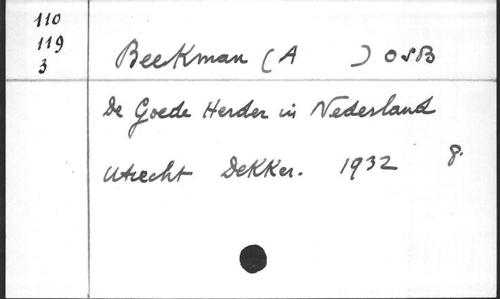 110
119
3
Beekman (A ) OSB
De Goede Herder in Nederland
Utrecht Dekker. 1932 8.